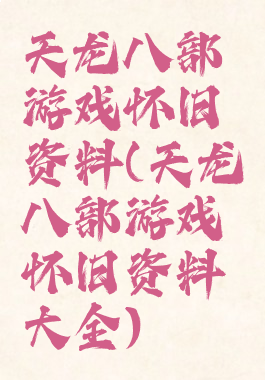 天龙八部
游戏怀旧
资料(天龙
八部游戏
怀旧资料
大全)